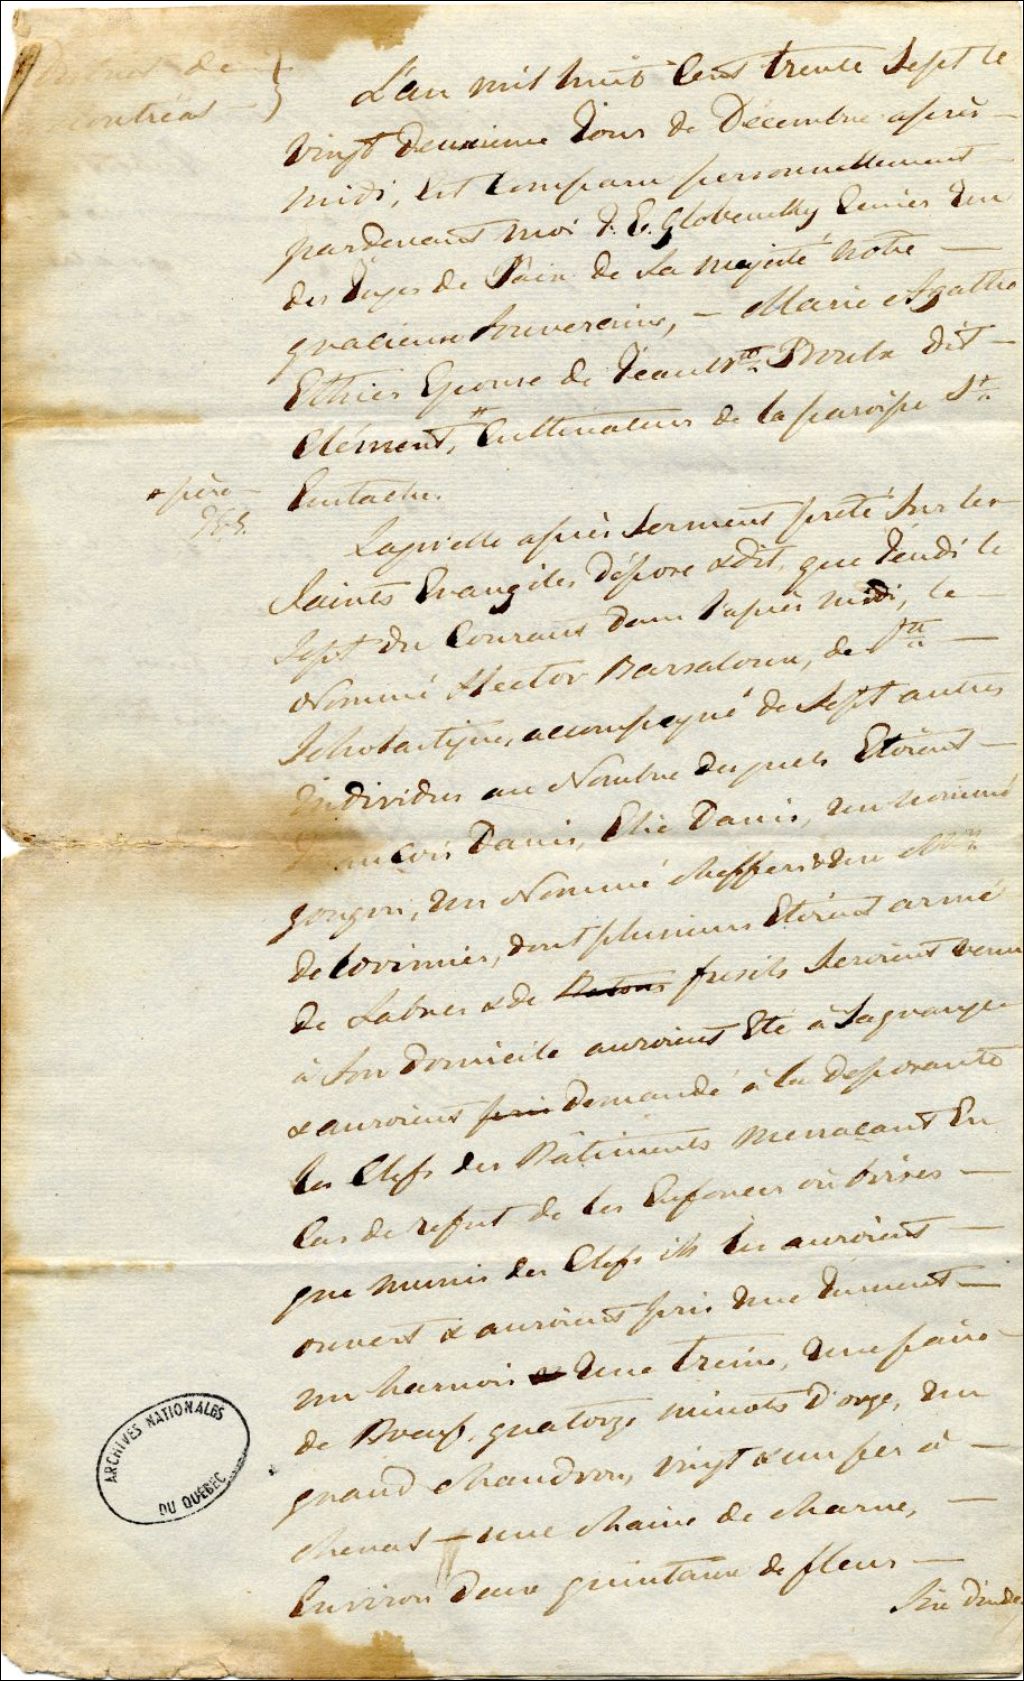 District de
Montréal
L'an mil huit Cent trente Sept le
vingt deuxieme Jour de Decembre après
midi, Est Comparu personnellement
pardevant moi J. E. Globensky Ecuier L'un
des Juges de Paix de Sa Majesté notre
gracieuse Souveraine, Marie Agathe
Ethier Epouse de Jean Bte. Proulx dit
Clément, # Cultivateur de la paroisse St.
Eustache.
* père
Laquelle après Serment preté Sur les
Saints Evangiles dépose & dit, que Jeudi le
Sept du Courant dans l'après midi, le
Nommé Hector Barsaloux, de Ste.
Scholastique, accompagné de Sept autres
individus au Nombre desquels Etoient
François Danis, Elie Danis, un nommé
gougon, un Nommé & un
de lorimier, dont plusieurs Etoient armé
de Sabres & de Batons fusils Seroient venu
à Son domicile auroient Eté à la grange
& auroient pris demandé à la deposante
les Clefs des Bâtiments menaçant En
Cas de refut de les Enfoncer où brises
que munis des Clefs ils les auroient
ouvert & auroient pris une Jument
un harnois & une treine, une paire
de Bœuf, quatorze minots d'orge, un
grand chaudron, vingt & un fer à
cheval une chaine de charue,
Environ deux quintaux de fleur
Six dindes
ARCHIVES NATIONALES
DU QUÉBEC